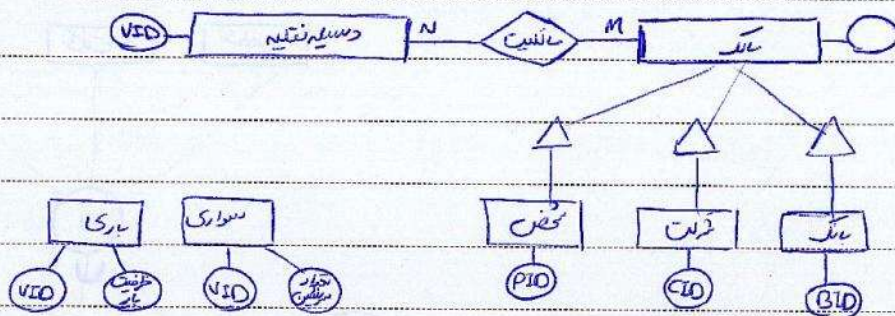 VID وسیله نقلیه N مالکیت M مالک
باری سواری شخص شرکت بانک
VID ظرفیت بار VID تعداد سرنشین PID CID BID